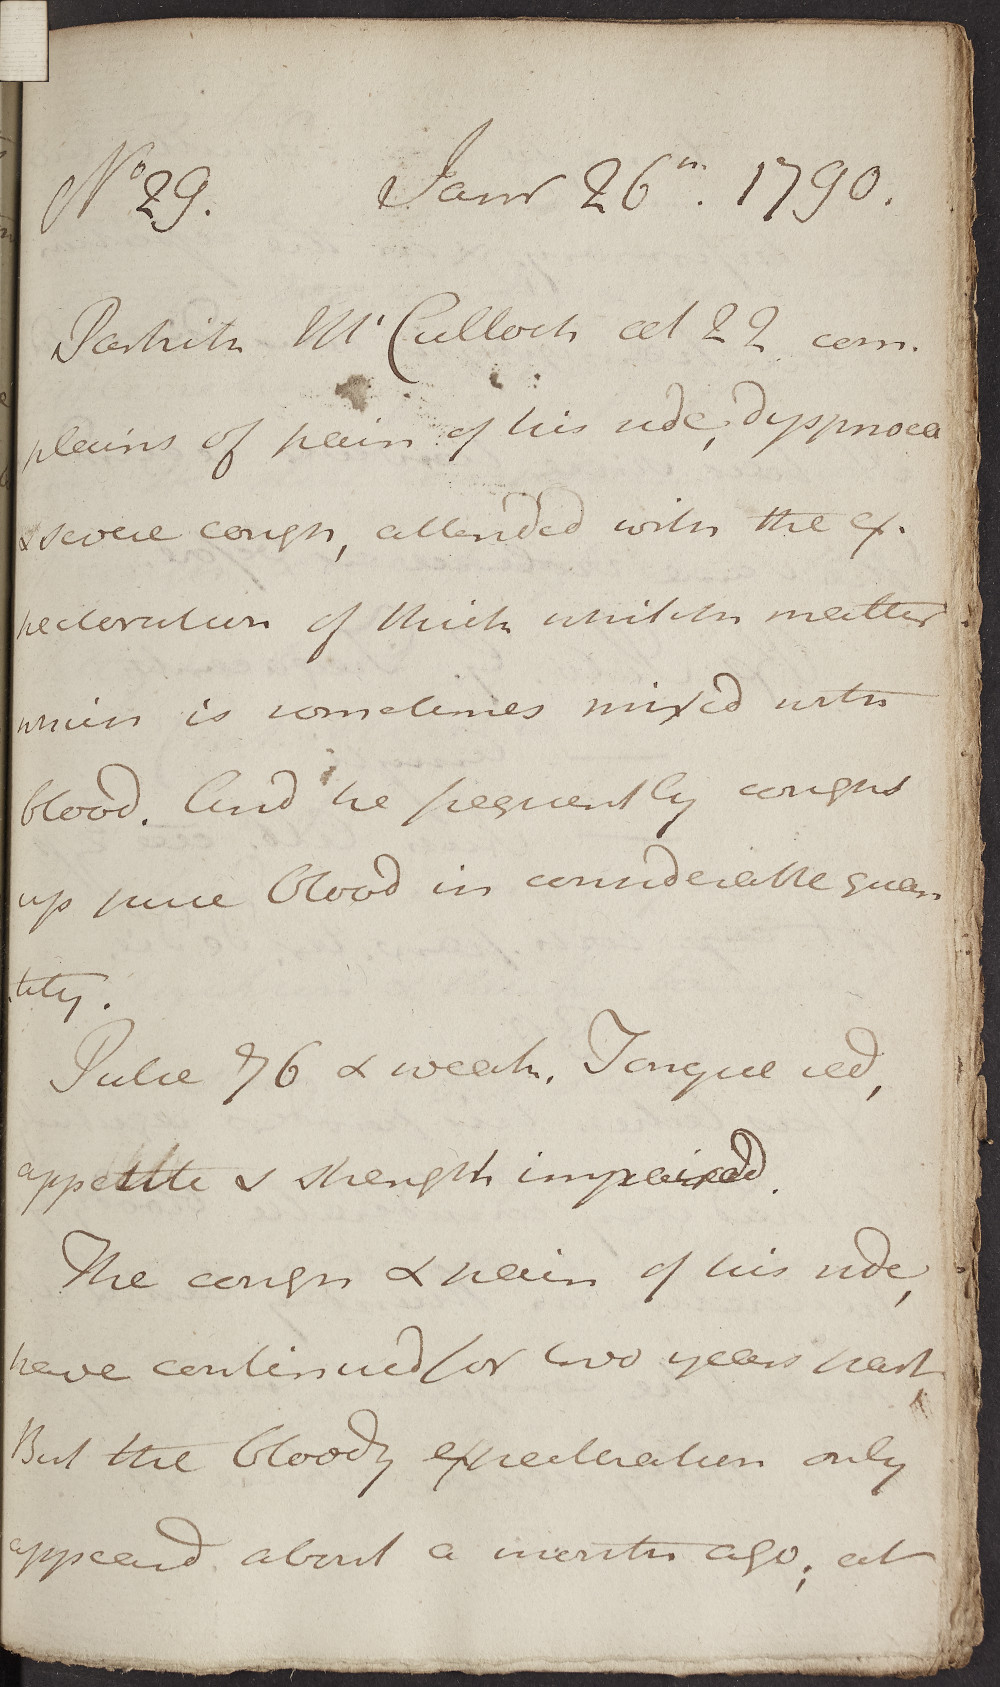 No 29. Janr 26th. 1790.
Patrick Mc Culloch aet 22 com.
plains of pain of his side, dyspnoea
& severe cough, attended with the ex.
pectoration of thick whitish matter
which is sometimes mixed with
blood. And he frequently coughs
up pure blood in considerable quan
tity.
Pulse 76 & weak. Tongue red,
appetite & strength impaired.
The cough & pain of his side,
have continued for two years past
But the bloody expectoration only
appeard about a month ago; at